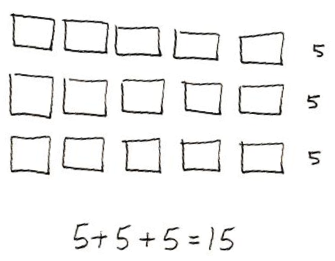 5
5
5
5+5+5=15